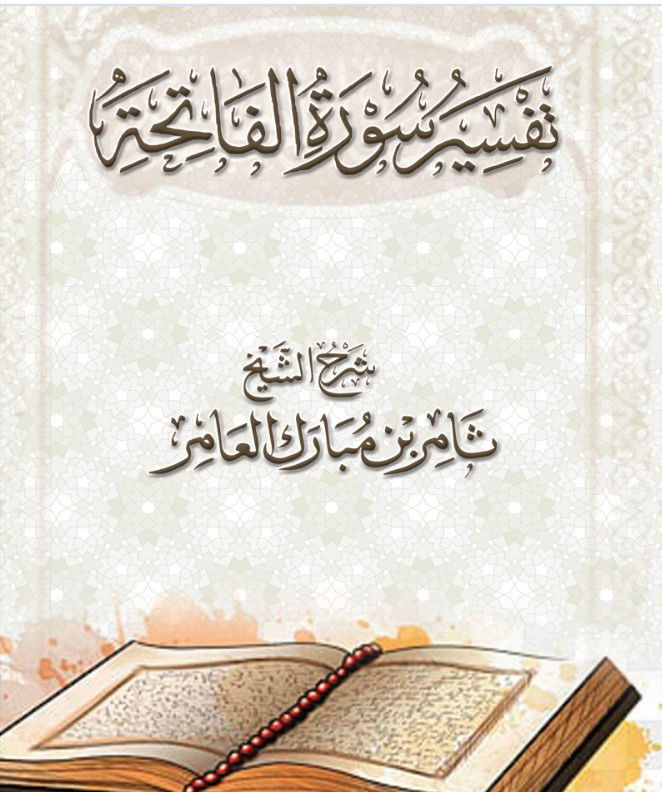 تَفْسِيرُ سُوْرَةِ الفَاتِحَةِ
شَرْحُ الشَّيْخِ
ثَامِرِ بْنِ مُبَارَكِ العَامِرِ